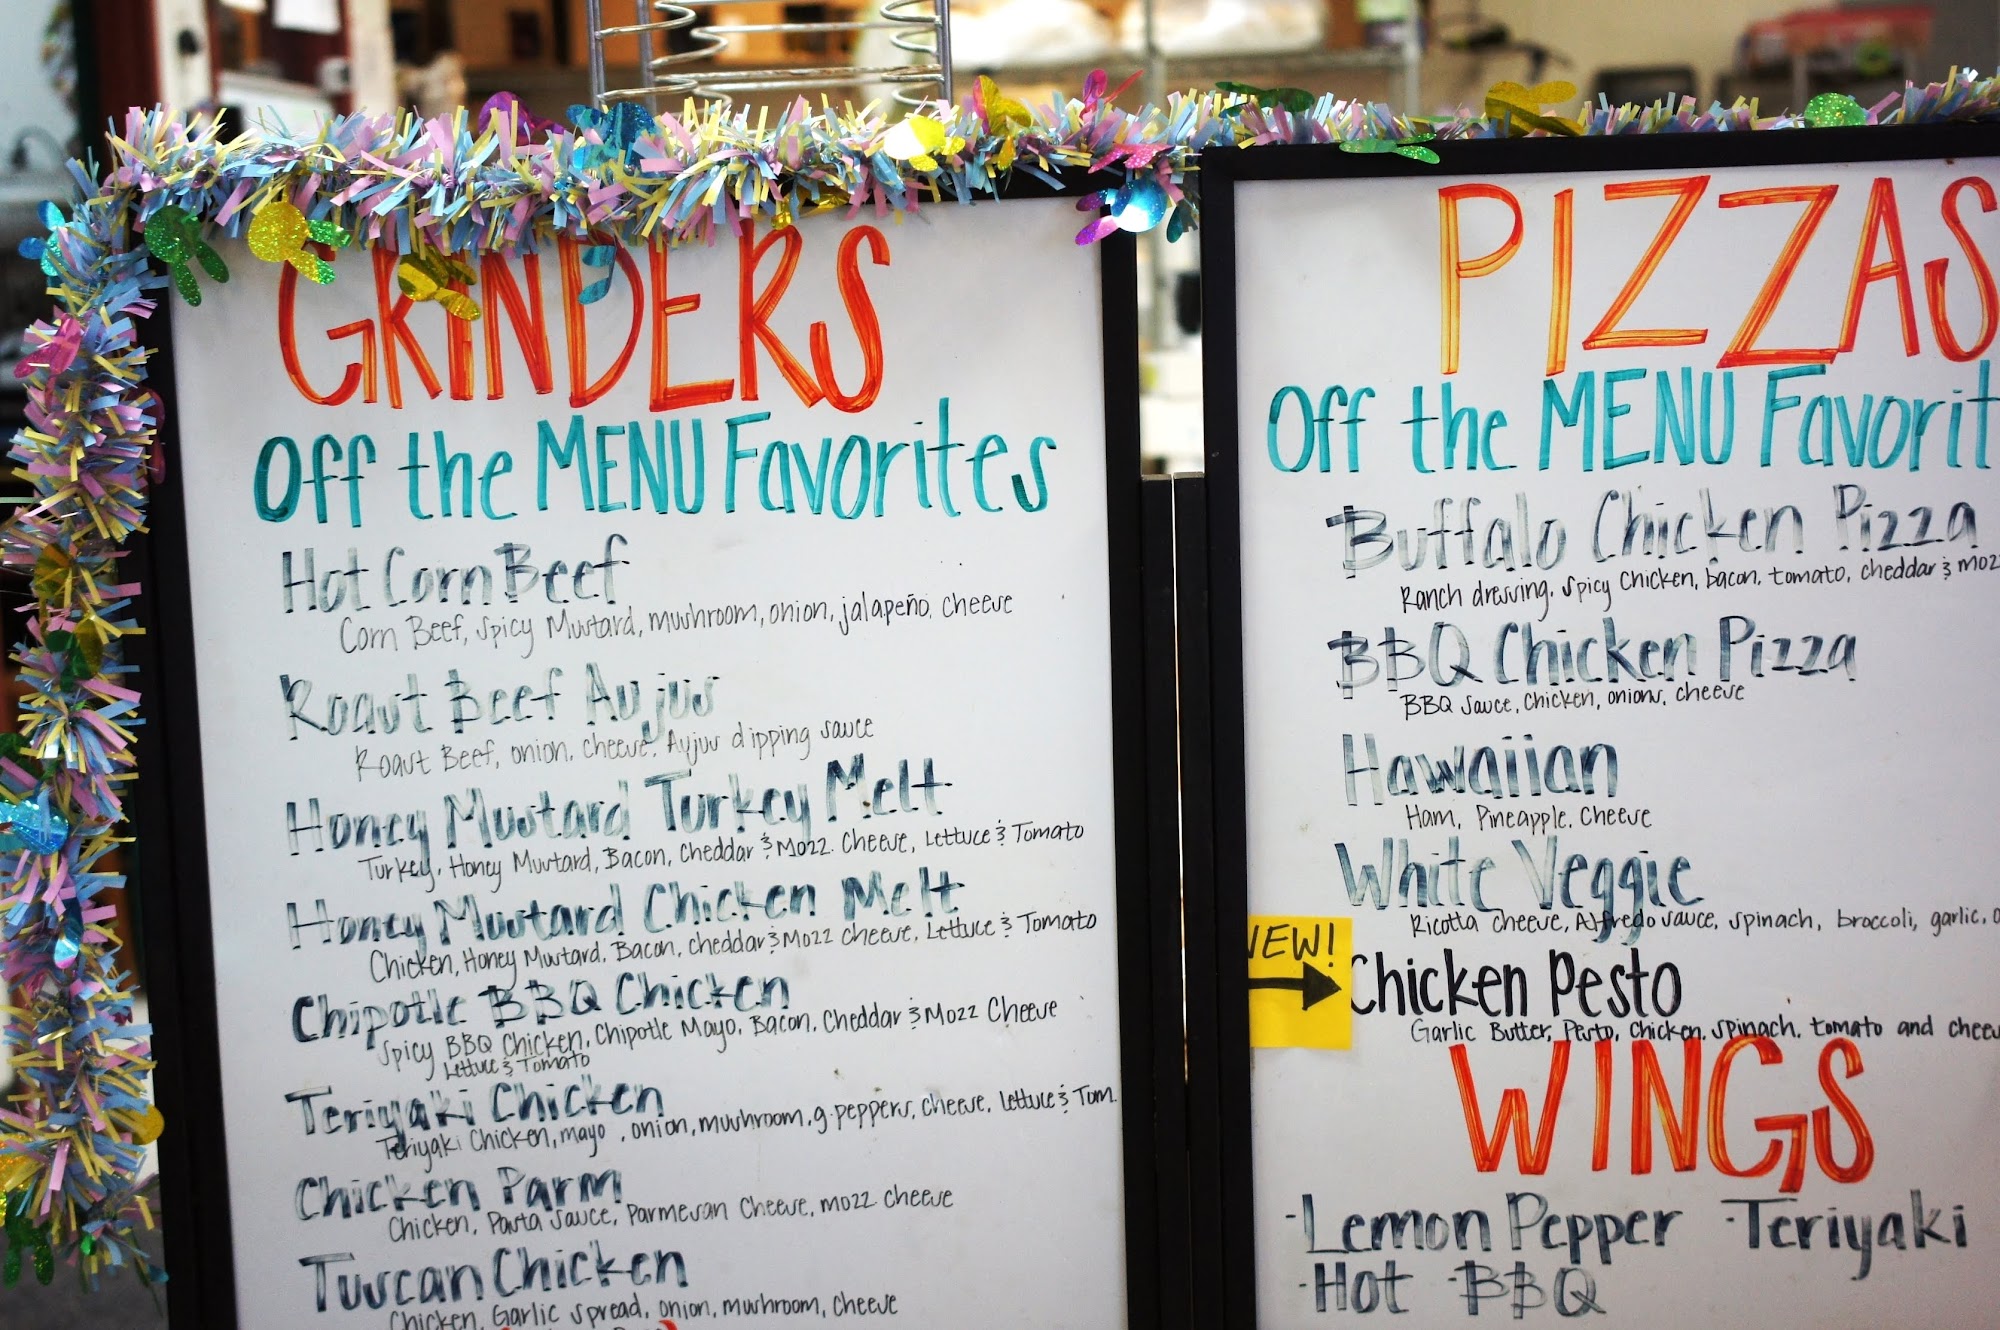 GRINDERS
Off the MENU Favorites
Hot Corn Beef
Corn Beef, Spicy Mustard, mushroom, onion, jalapeño, cheese
Roast Beef Aujus
Roast Beef, onion, cheese, Aujus dipping sauce
Honey Mustard Turkey Melt
Turkey, Honey Mustard, Bacon, Cheddar & Mozz. Cheese, Lettuce & Tomato
Honey Mustard Chicken Melt
Chicken, Honey Mustard, Bacon, cheddar & Mozz cheese, Lettuce & Tomato
Chipotle BBQ Chicken
Spicy BBQ Chicken, Chipotle Mayo, Bacon, Cheddar & Mozz Cheese
Lettuce & Tomato
Teriyaki Chicken
Teriyaki Chicken, mayo, onion, mushroom, g.peppers, cheese, lettuce & Tom.
Chicken Parm
Chicken, Pasta Sauce, Parmesan Cheese, mozz cheese
Tuscan Chicken
Chicken, Garlic spread, onion, mushroom, cheese
PIZZAS
Off the MENU Favorit
Buffalo Chicken Pizza
Ranch dressing, spicy chicken, bacon, tomato, cheddar & moz
BBQ Chicken Pizza
BBQ Sauce, chicken, onions, cheese
Hawaiian
Ham, Pineapple, Cheese
White Veggie
Ricotta cheese, Alfredo sauce, spinach, broccoli, garlic, o
NEW!
Chicken Pesto
Garlic Butter, Pesto, chicken, spinach, tomato and chees
WINGS
-Lemon Pepper -Teriyaki
-Hot -BBQ